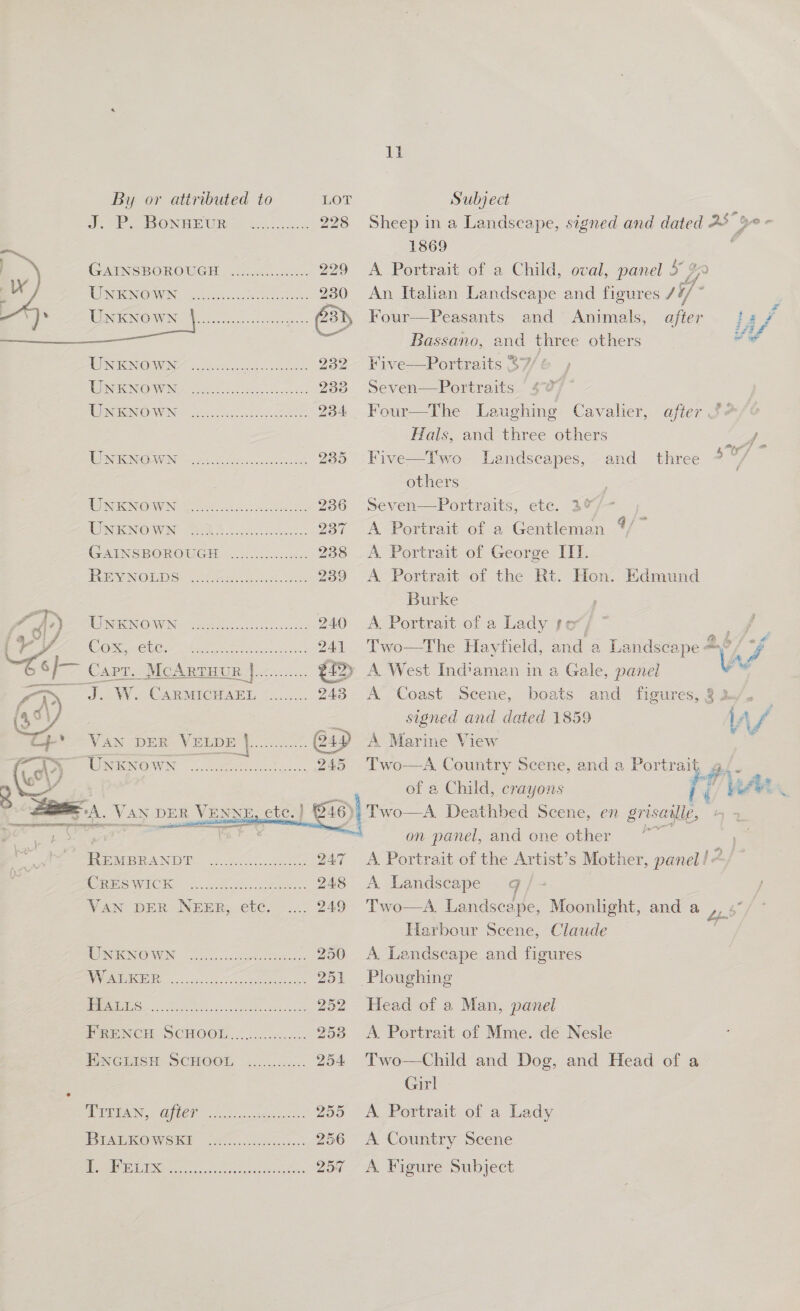 11
By or attributed to LOT Subject
J. P. BONHEUR ............ 228 Sheep in a Landscape, signed and dated
1869
GAINSBOROUGH ............... 229 A Portrait of a Child, oval, panel
UNKNOWN ..................... 230 An Italian Landscape and figures
UNKNOWN ..................... 231 Four—Peasants and Animals, after
Bassano, and three others
UNKNOWN ..................... 232 Five—Portraits 37/6
UNKNOWN ..................... 233 Seven—Portraits
UNKNOWN ..................... 234 Four—The Laughing Cavalier, after
Hals, and three others
UNKNOWN ..................... 235 Five—Two Landscapes, and three
others
UNKNOWN ..................... 236 Seven—Portraits, etc. 30/-
UNKNOWN ..................... 237 A Portrait of a Gentleman
GAINSBOROUGH ............... 238 A Portrait of George III.
REYNOLDS ..................... 239 A Portrait of the Rt. Hon. Edmund
Burke
UNKNOWN ..................... 240 A Portrait of a Lady
COX, etc. ..................... 241 Two—The Hayfield, and a Landscape
CAPT. MCARTHUR ............ 242 A West Ind'aman in a Gale, panel
J. W. CARMICHAEL ........ 243 A Coast Scene, boats and figures,
signed and dated 1859
VAN DER VELDE ............ 244 A Marine View
UNKNOWN ..................... 245 Two—A Country Scene, and a Portrait
of a Child, crayons
A. VAN DER VENNE, etc. 246 Two—A Deathbed Scene, en grisaille,
on panel, and one other
REMBRANDT .................. 247 A Portrait of the Artist's Mother, panel
CRESWICK ..................... 248 A Landscape
VAN DER NEER, etc. .... 249 Two—A Landscape, Moonlight, and a
Harbour Scene, Claude
UNKNOWN ..................... 250 A Landscape and figures
WALKER ........................ 251 Ploughing
HALLS ........................... 252 Head of a Man, panel
FRENCH SCHOOL ............... 253 A Portrait of Mme. de Nesle
ENGLISH SCHOOL ............ 254 Two—Child and Dog, and Head of a
Girl
TITIAN, after .................. 255 A Portrait of a Lady
BIALKOWSKI .................. 256 A Country Scene
I. FELIX ........................ 257 A Figure Subject